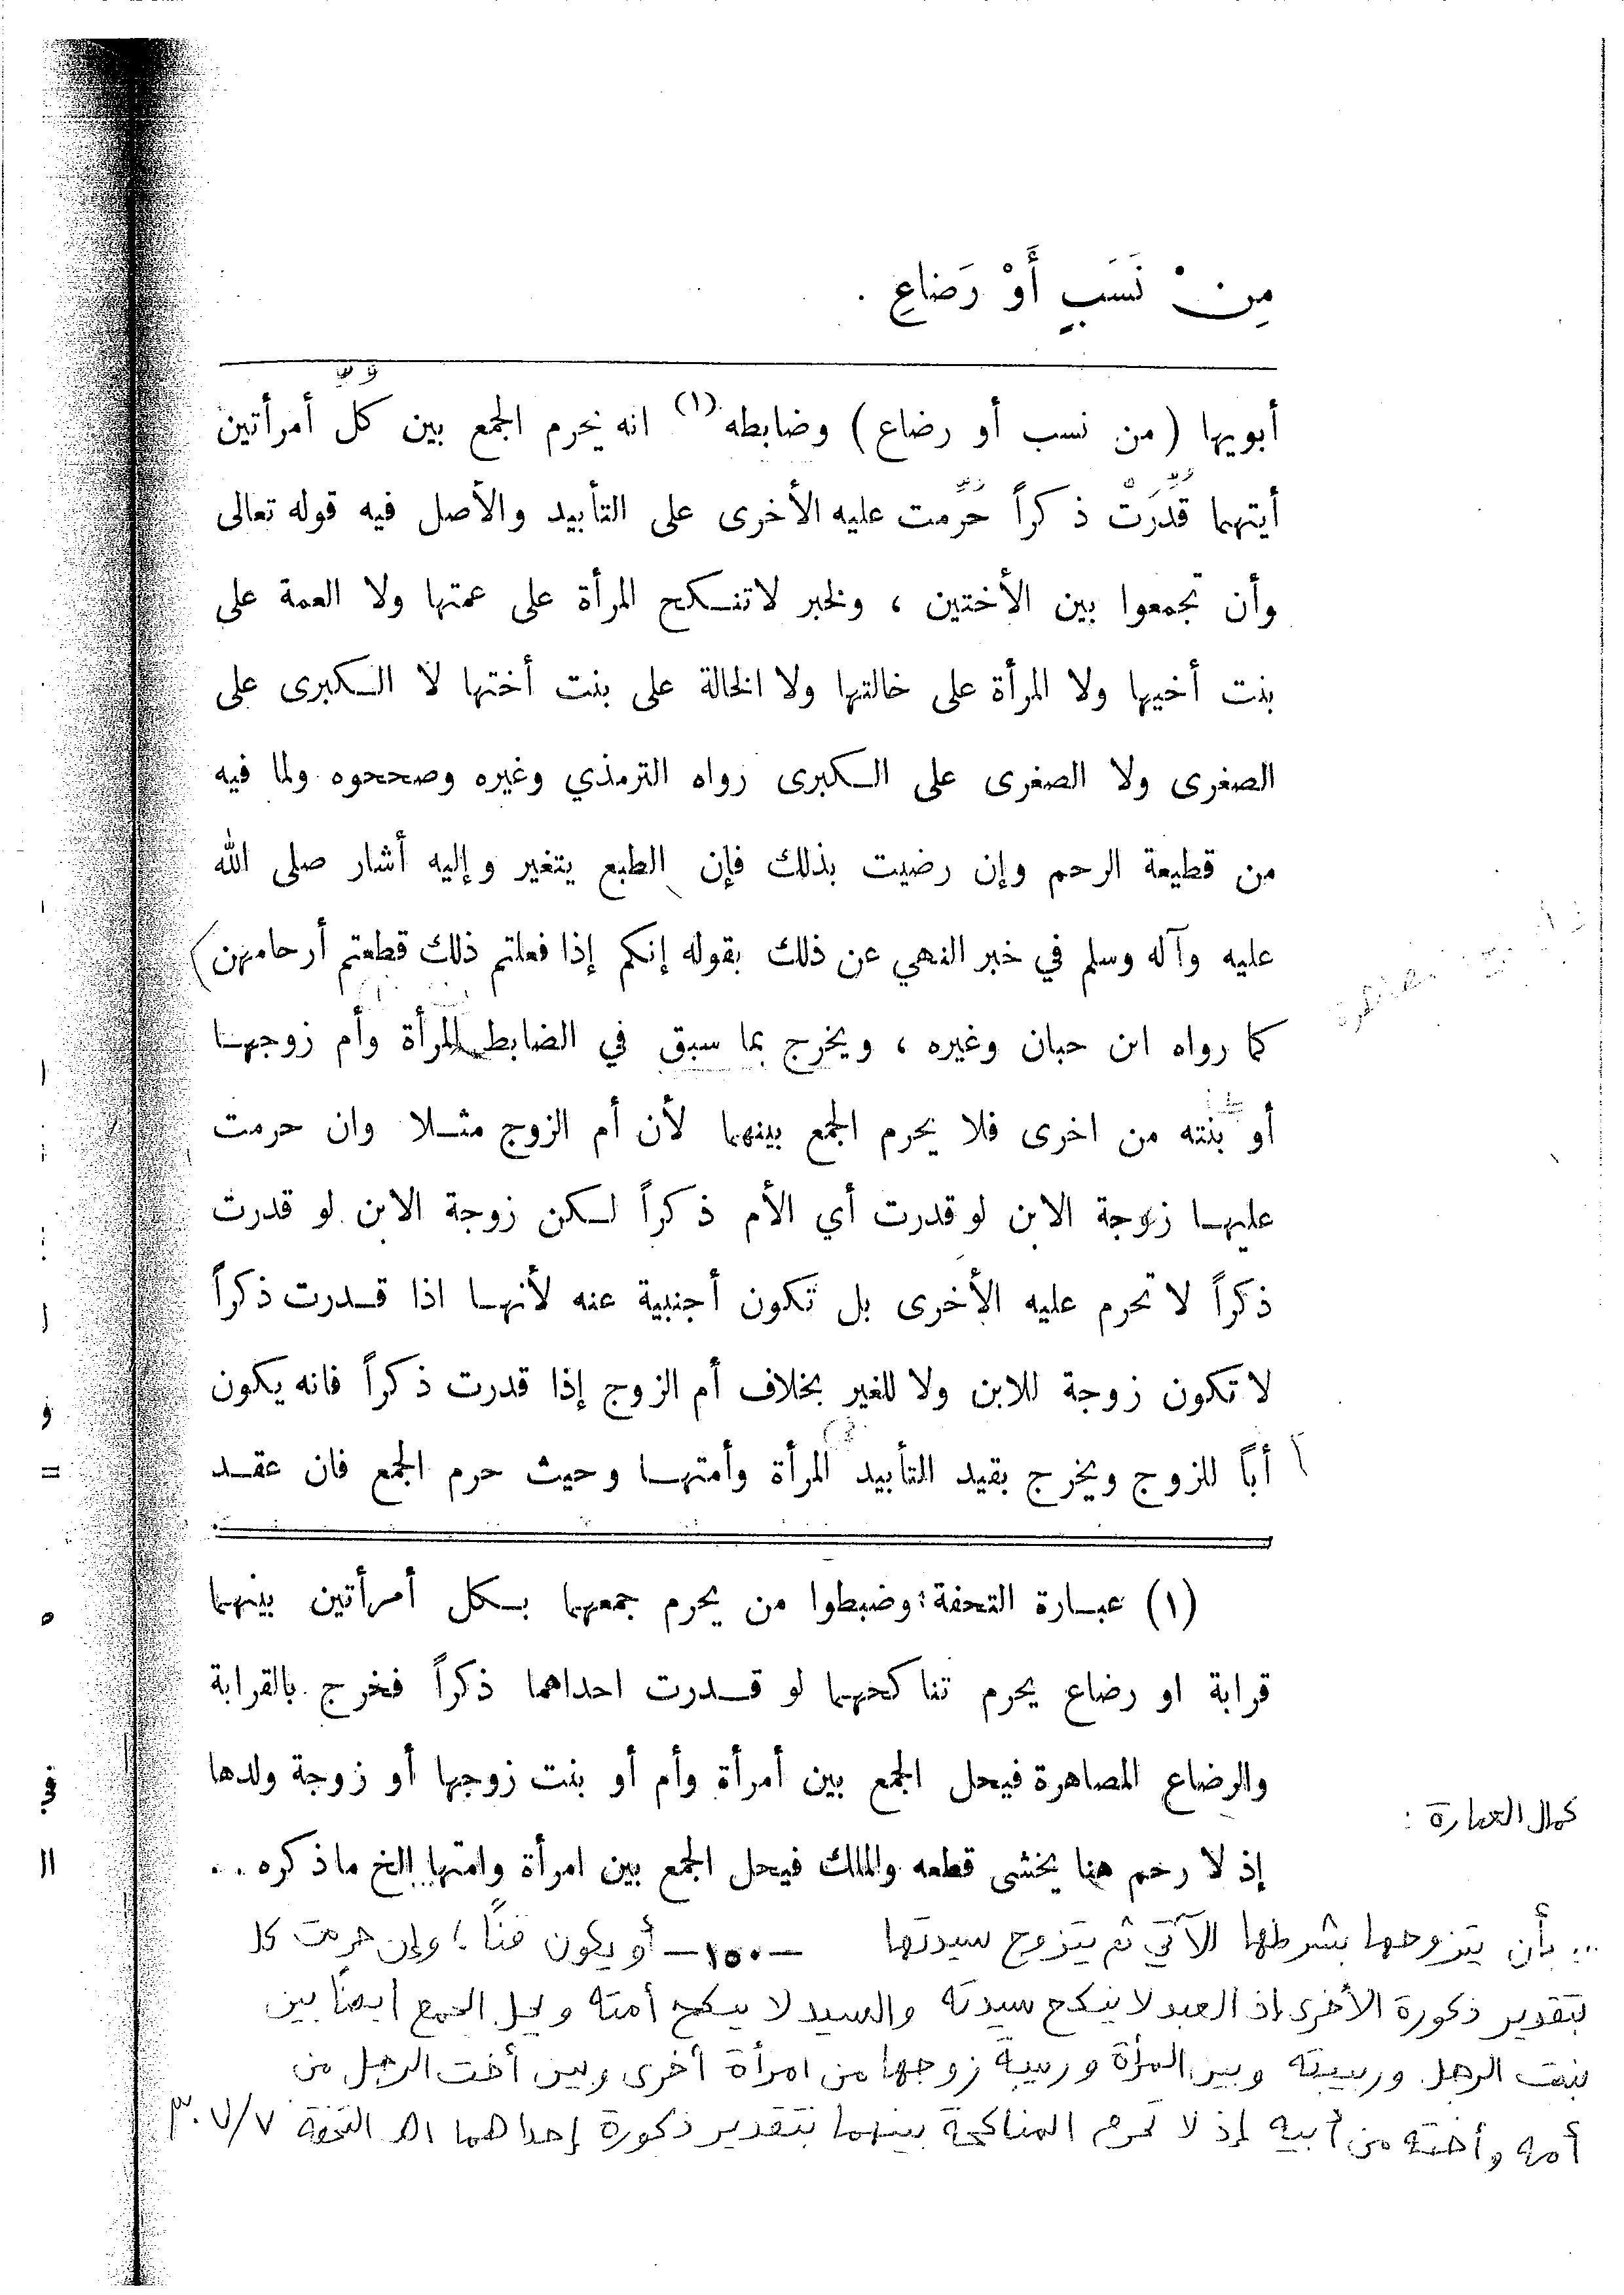 مِنْ نَسَبٍ أَوْ رَضاعِ .
أبويها ( من نسب أو رضاع ) وضابطه (١) انه يحرم الجمع بين كلّ أمرأتين
أيتهما قُدِّرَتْ ذكراً حُرِّمت عليه الأخرى على التأبيد والأصل فيه قوله تعالى
وأن تجمعوا بين الأختين ، ولخبر لاتنكح المرأة على عمتها ولا العمة على
بنت أخيها ولا المرأة على خالتها ولا الخالة على بنت أختها لا الكبرى على
الصغرى ولا الصغرى على الكبرى رواه الترمذي وغيره وصححوه ولما فيه
من قطيعة الرحم وإن رضيت بذلك فإن الطبع يتغير وإليه أشار صلى الله
عليه وآله وسلم في خبر النهي عن ذلك بقوله إنكم إذا فعلتم ذلك قطعتم أرحامهن )
كما رواه ابن حبان وغيره ، ويخرج بما سبق في الضابط المرأة وأم زوجها
أو بنته من اخرى فلا يحرم الجمع بينهما لأن أم الزوج مثلا وان حرمت
عليها زوجة الابن لو قدرت أي الأم ذكراً لكن زوجة الابن لو قدرت
ذكراً لا تحرم عليه الأخرى بل تكون أجنبية عنه لأنها اذا قدرت ذكراً
لا تكون زوجة للابن ولا للغير بخلاف أم الزوج إذا قدرت ذكراً فانه يكون
أباً للزوج ويخرج بقيد التأبيد المرأة وأمتها وحيث حرم الجمع فان عقد
(١) عبارة التحفة : وضبطوا من يحرم جمعهما بكل أمرأتين بينهما
قرابة او رضاع يحرم تناكحهما لو قدرت احداهما ذكراً فخرج بالقرابة
والرضاع المصاهرة فيحل الجمع بين أمرأة وأم أو بنت زوجها أو زوجة ولدها
كمال العبارة :
إذ لا رحم هنا يخشى قطعه والملك فيحل الجمع بين امرأة وامتها الخ ماذكره ..
... بأن يتزوجها بشرطها الآتي ثم يتزوج سيدتها – ١٥٠ – أو يكون قناً ؛ وإن حرمت كل
بتقدير ذكورة الأخرى إذ العبد لا ينكح سيدته والسيد لا ينكح أمته ويحل الجمع أيضاً بين
بنت الرجل وربيبته وبين المرأة وربيبة زوجها من امرأة أخرى وبين أخت الرجل من
أمه وأخته من أبيه إذ لا تحرم المناكحة بينهما بتقدير ذكورة إحداهما اهـ التحفة ٣٠٧/٧